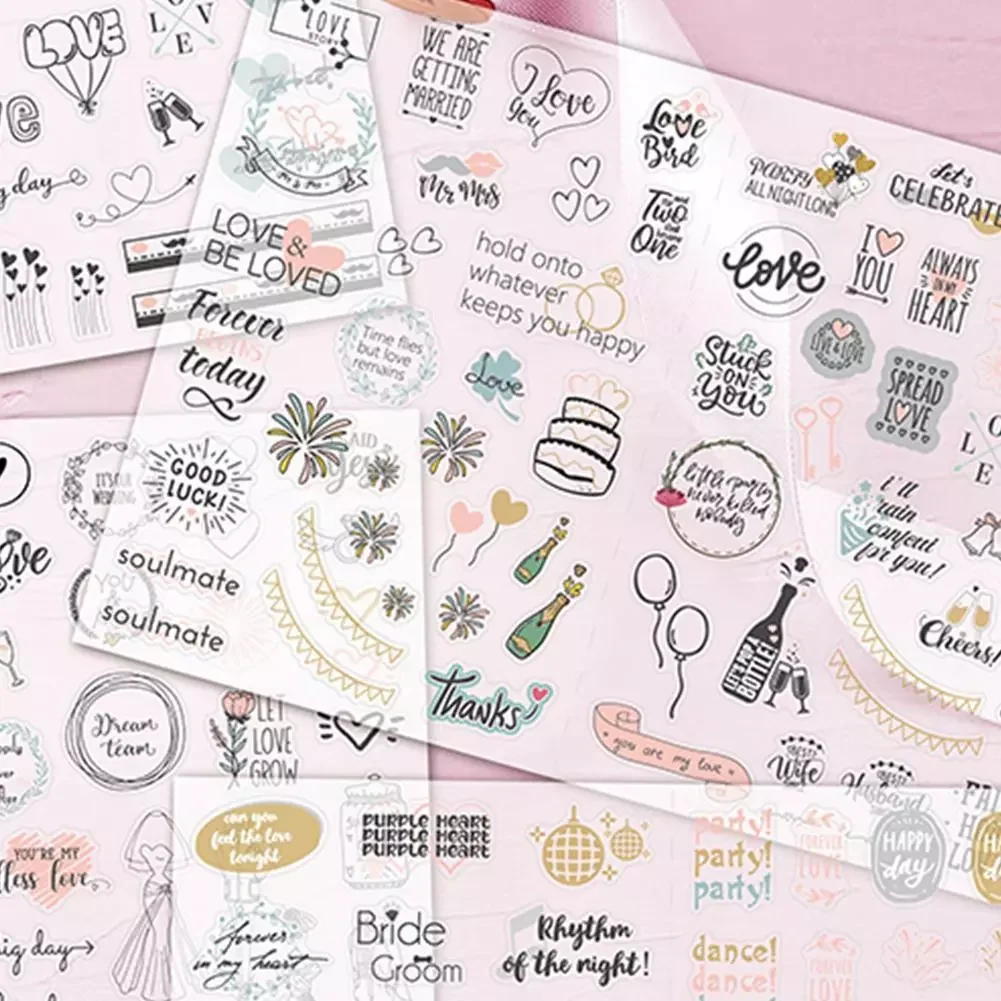 LOVE
L
V
E
LOVE
STORY
WE ARE
GETTING
MARRIED
I Love
You
Love
Bird
PARTY
ALL NIGHT LONG
Let's
CELEBRATE
ve
g day
Mr & Mrs
Mr Mrs
Two
One
LOVE &
BE LOVED
hold onto
whatever
keeps you happy
love
I
YOU
ALWAYS
ON MY
HEART
Forever
BEGINS
today
Time flies
but love
remains
Love
Stuck
ON
You
LIVE & LOVE
SPREAD
LOVE
O
L
E
IT'S OUR
WEDDING
GOOD
LUCK!
SAID
yes
little party
never killed
nobody
i'll
rain
confetti
for you!
ove
soulmate
soulmate
YOU
&
LET'S POP A
BOTTLE!
Cheers!
THANKS
Dream
team
LET
LOVE
GROW
you are my love
BEST
Wife
BEST
Husband
can you
feel the love
tonight
PURPLE HEART
PURPLE HEART
PURPLE HEART
party!
party!
party!
FOREVER
LOVE
HAPPY
day
YOU'RE MY
less love
ig day
forever
in my heart
Bride
Groom
Rhythm
of the night!
dance!
dance!
FOREVER
LOVE